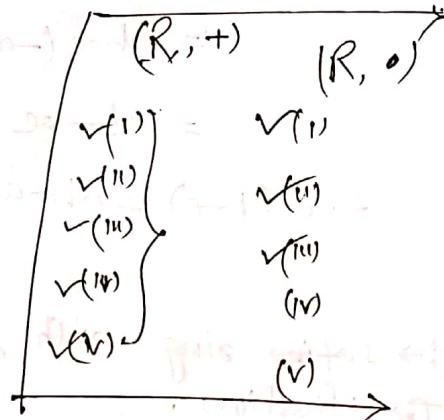 (R, +)
(R, •)
✓(i) ✓(i)
✓(ii) ✓(ii)
✓(iii) ✓(iii)
✓(iv) (iv)
✓(v) (v)